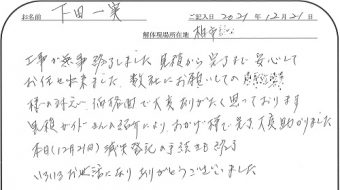 お名前 下田一実 ご記入日 2021年12月21日
解体現場所在地 相中
工事が無事終了しました 見積から完了まで安心して
お任せ出来ました 数社にお願いしての
様への対応 価格面で大変ありがたく思っております
見積ガイドさんの紹介により おかげ様で 大変助かりました
本日(12月21日)滅失登記の手続きも終了
いろいろお世話になり ありがとうございました